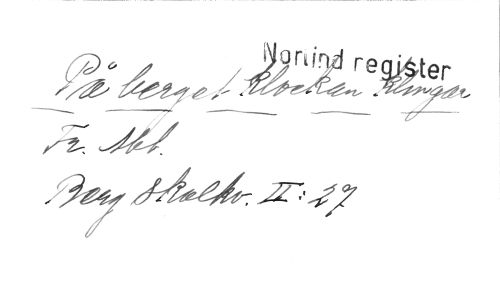 Norlind register
På berget klockan klingar
Fr. Abb.
Berg Skolkv. II: 27